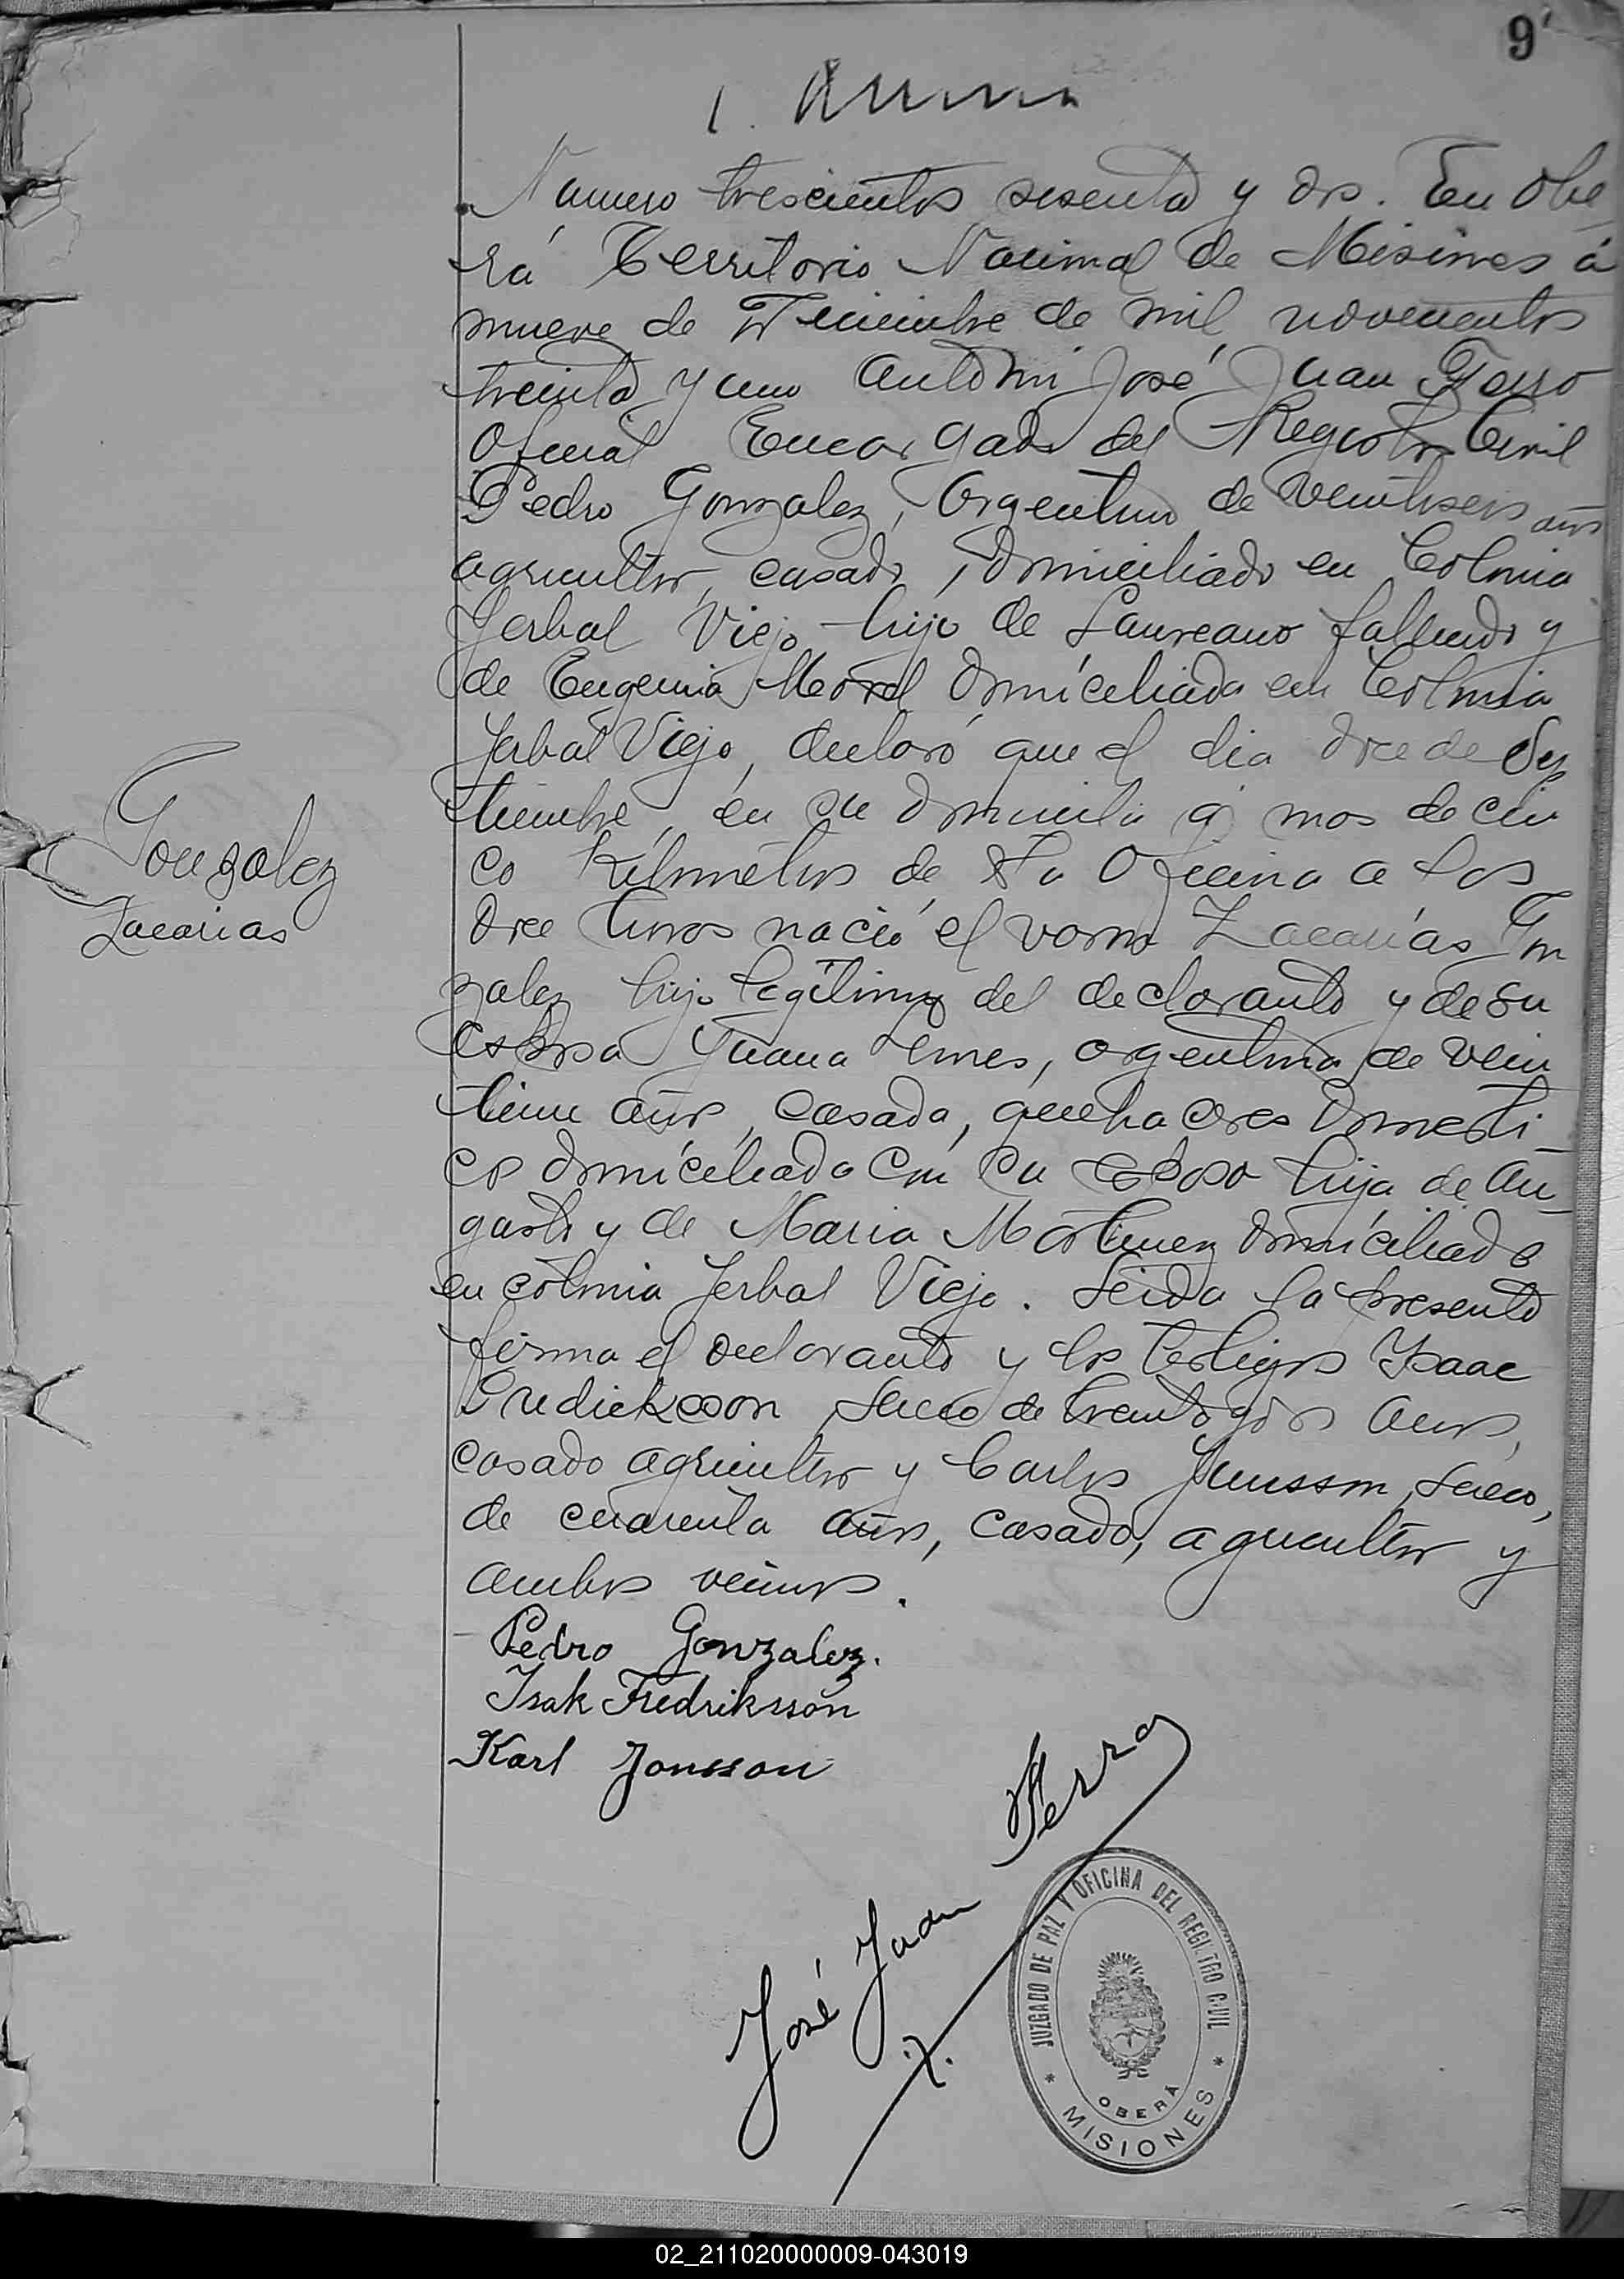 9
Numero trescientos sesenta y dos. En Obe
rá Territorio Nacional de Misiones á
nueve de Diciembre de mil novecientos
treinta y uno ante mi José Juan Ferro
Oficial Encargado del Registro Civil
Pedro Gonzalez, Argentino de veintiseis años
agricultor, casado, domiciliado en Colonia
Yerbal Viejo hijo de Laureano fallecido y
de Eugenia Morel domiciliada en Colonia
Yerbal Viejo, declaró que el dia doce de Sep
tiembre, en su domicilio a mas de cin
co Kilometros de esta Oficina a las
doce horas nació el varon Zacarías Gon
zalez hijo legitimo del declarante y de su
esposa Juana, argentina de vein
tiun años, casada, quehaceres domesti
cos domiciliada con su esposo hija de Au
gusto y de Maria Martinez domiciliado
en colonia Yerbal Viejo. Leida la presente
firma el declarante y los testigos Ysaac
Fredickson, Sueco de treinta y dos años,
casado agricultor y Carlos Junsson, Sueco,
de cuarenta años, casado, agricultor y
ambos vecinos.
Gonzalez
Zacarias
Pedro Gonzalez.
Isak Fredriksson
Karl Jonsson
José Juan Ferro
JUZGADO DE PAZ Y OFICINA DEL REGISTRO CIVIL
OBERÁ
* MISIONES *
02_211020000009-043019